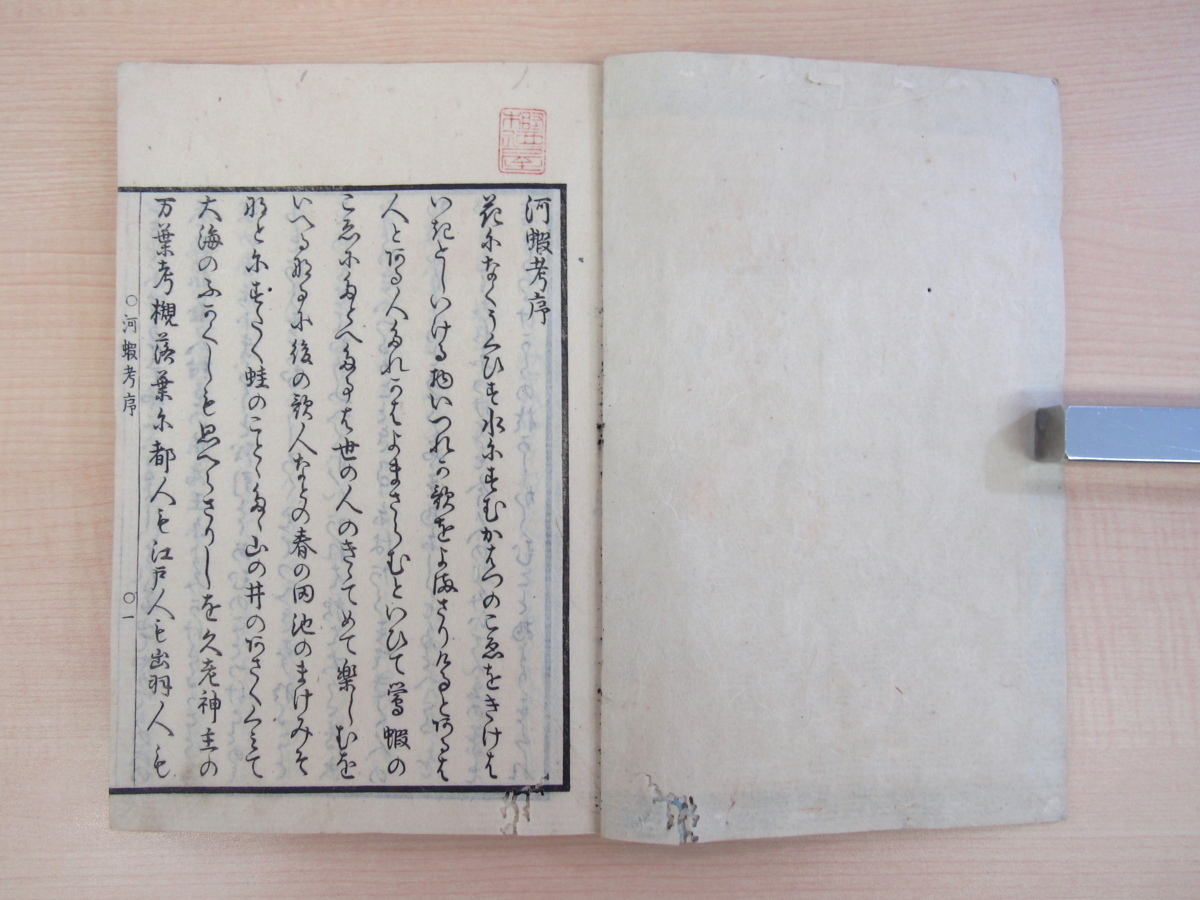 河蝦考序
花になくうくひす水にすむかはつのこゑをきけは
いきとしいける物いつれか歌をよまさりけるとあるは
人とある人たれかはよまさらむといひて鶯蝦の
こゑにたとへたるは世の人のきゝてめて楽しむを
いへるなるに後の歌人なとの春の田池のまけみそ
なとにすたく蛙のことゝたゝ山の井のあさくくみて
大海のふかくしも思へらさりしを久老神主の
万葉考槻落葉に都人も江戸人も出羽人も
○河蝦考序 ○一